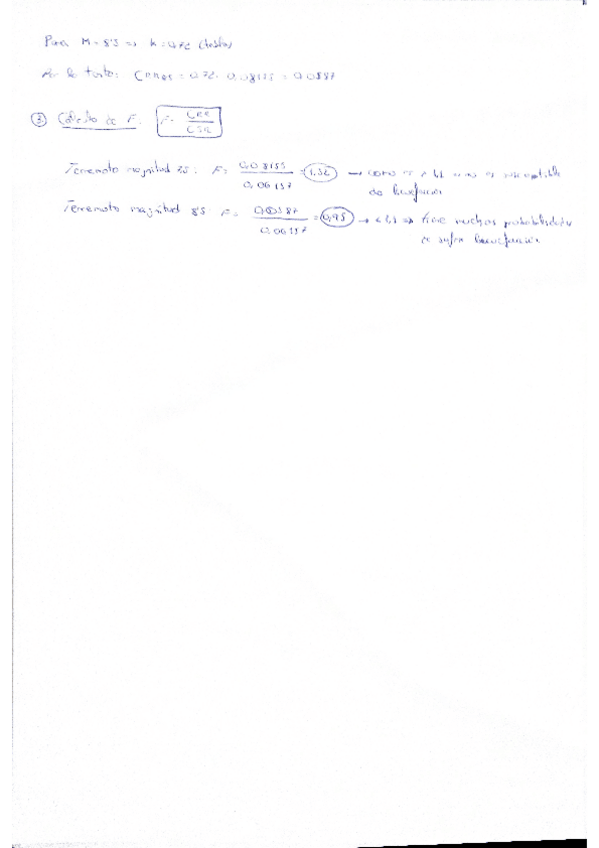 Para M = 8'5 => k = 0,72 (tabla)
Por lo tanto: CRR8'5 = 0,72 · 0,08155 = 0,0587
③ Cálculo de F: F = CRR / CSR
Terremoto magnitud 7'5: F = 0,08155 / 0,06157 = 1,32 → como es > 1,1 => no es susceptible
de licuefacción
Terremoto magnitud 8'5: F = 0,0587 / 0,06157 = 0,95 → < 1,1 => tiene muchas probabilidades
de sufrir licuefacción